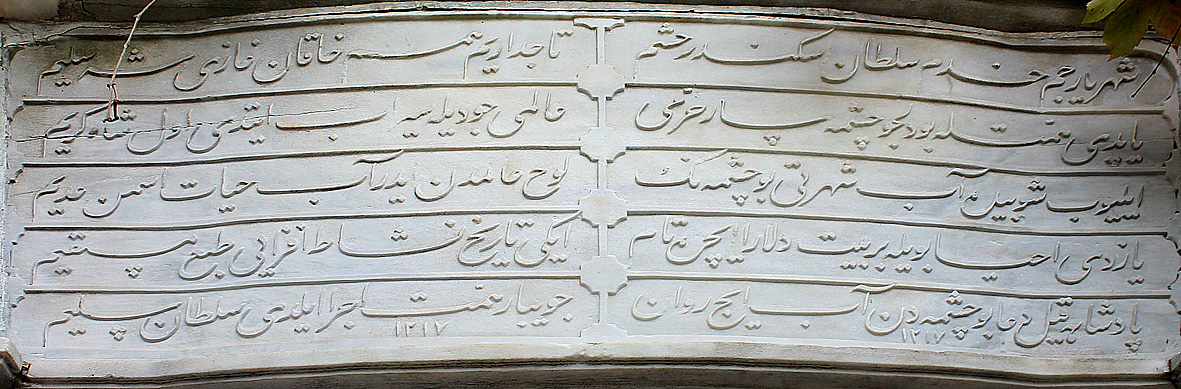 شهریار جم خدم سلطان سکندر حشم تاجدار یم همم خاقان غازی شه سلیم
یاپدی همتله بو دلجو چشمه عالمی جودیله سیراب ایتدی اول شاه کریم
ایلیوب آب شهرتی بو چشمه نك لوح عالمدن ایدر آب حیات اسمن عدیم
یازدی احیا بویله بر بیت دلارا ایچره تام ایکی تاریخ نشاط افزایی طبع مستقیم
پادشاهه قیل دعا بو چشمه دن آب ایچ روان ۱۲۱۷ جویبار همت اجرا ایلدی سلطان سلیم ۱۲۱۷